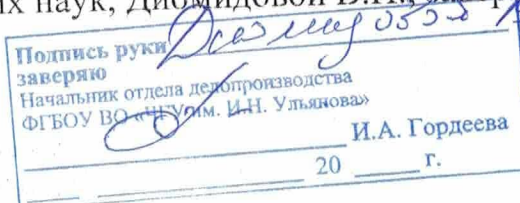 их наук, Диомидовой В.Н.,
Подпись руки Диомидовой В
заверяю
Начальник отдела делопроизводства
ФГБОУ ВО «ЧГУ им. И.Н. Ульянова»
И.А. Гордеева
20 г.